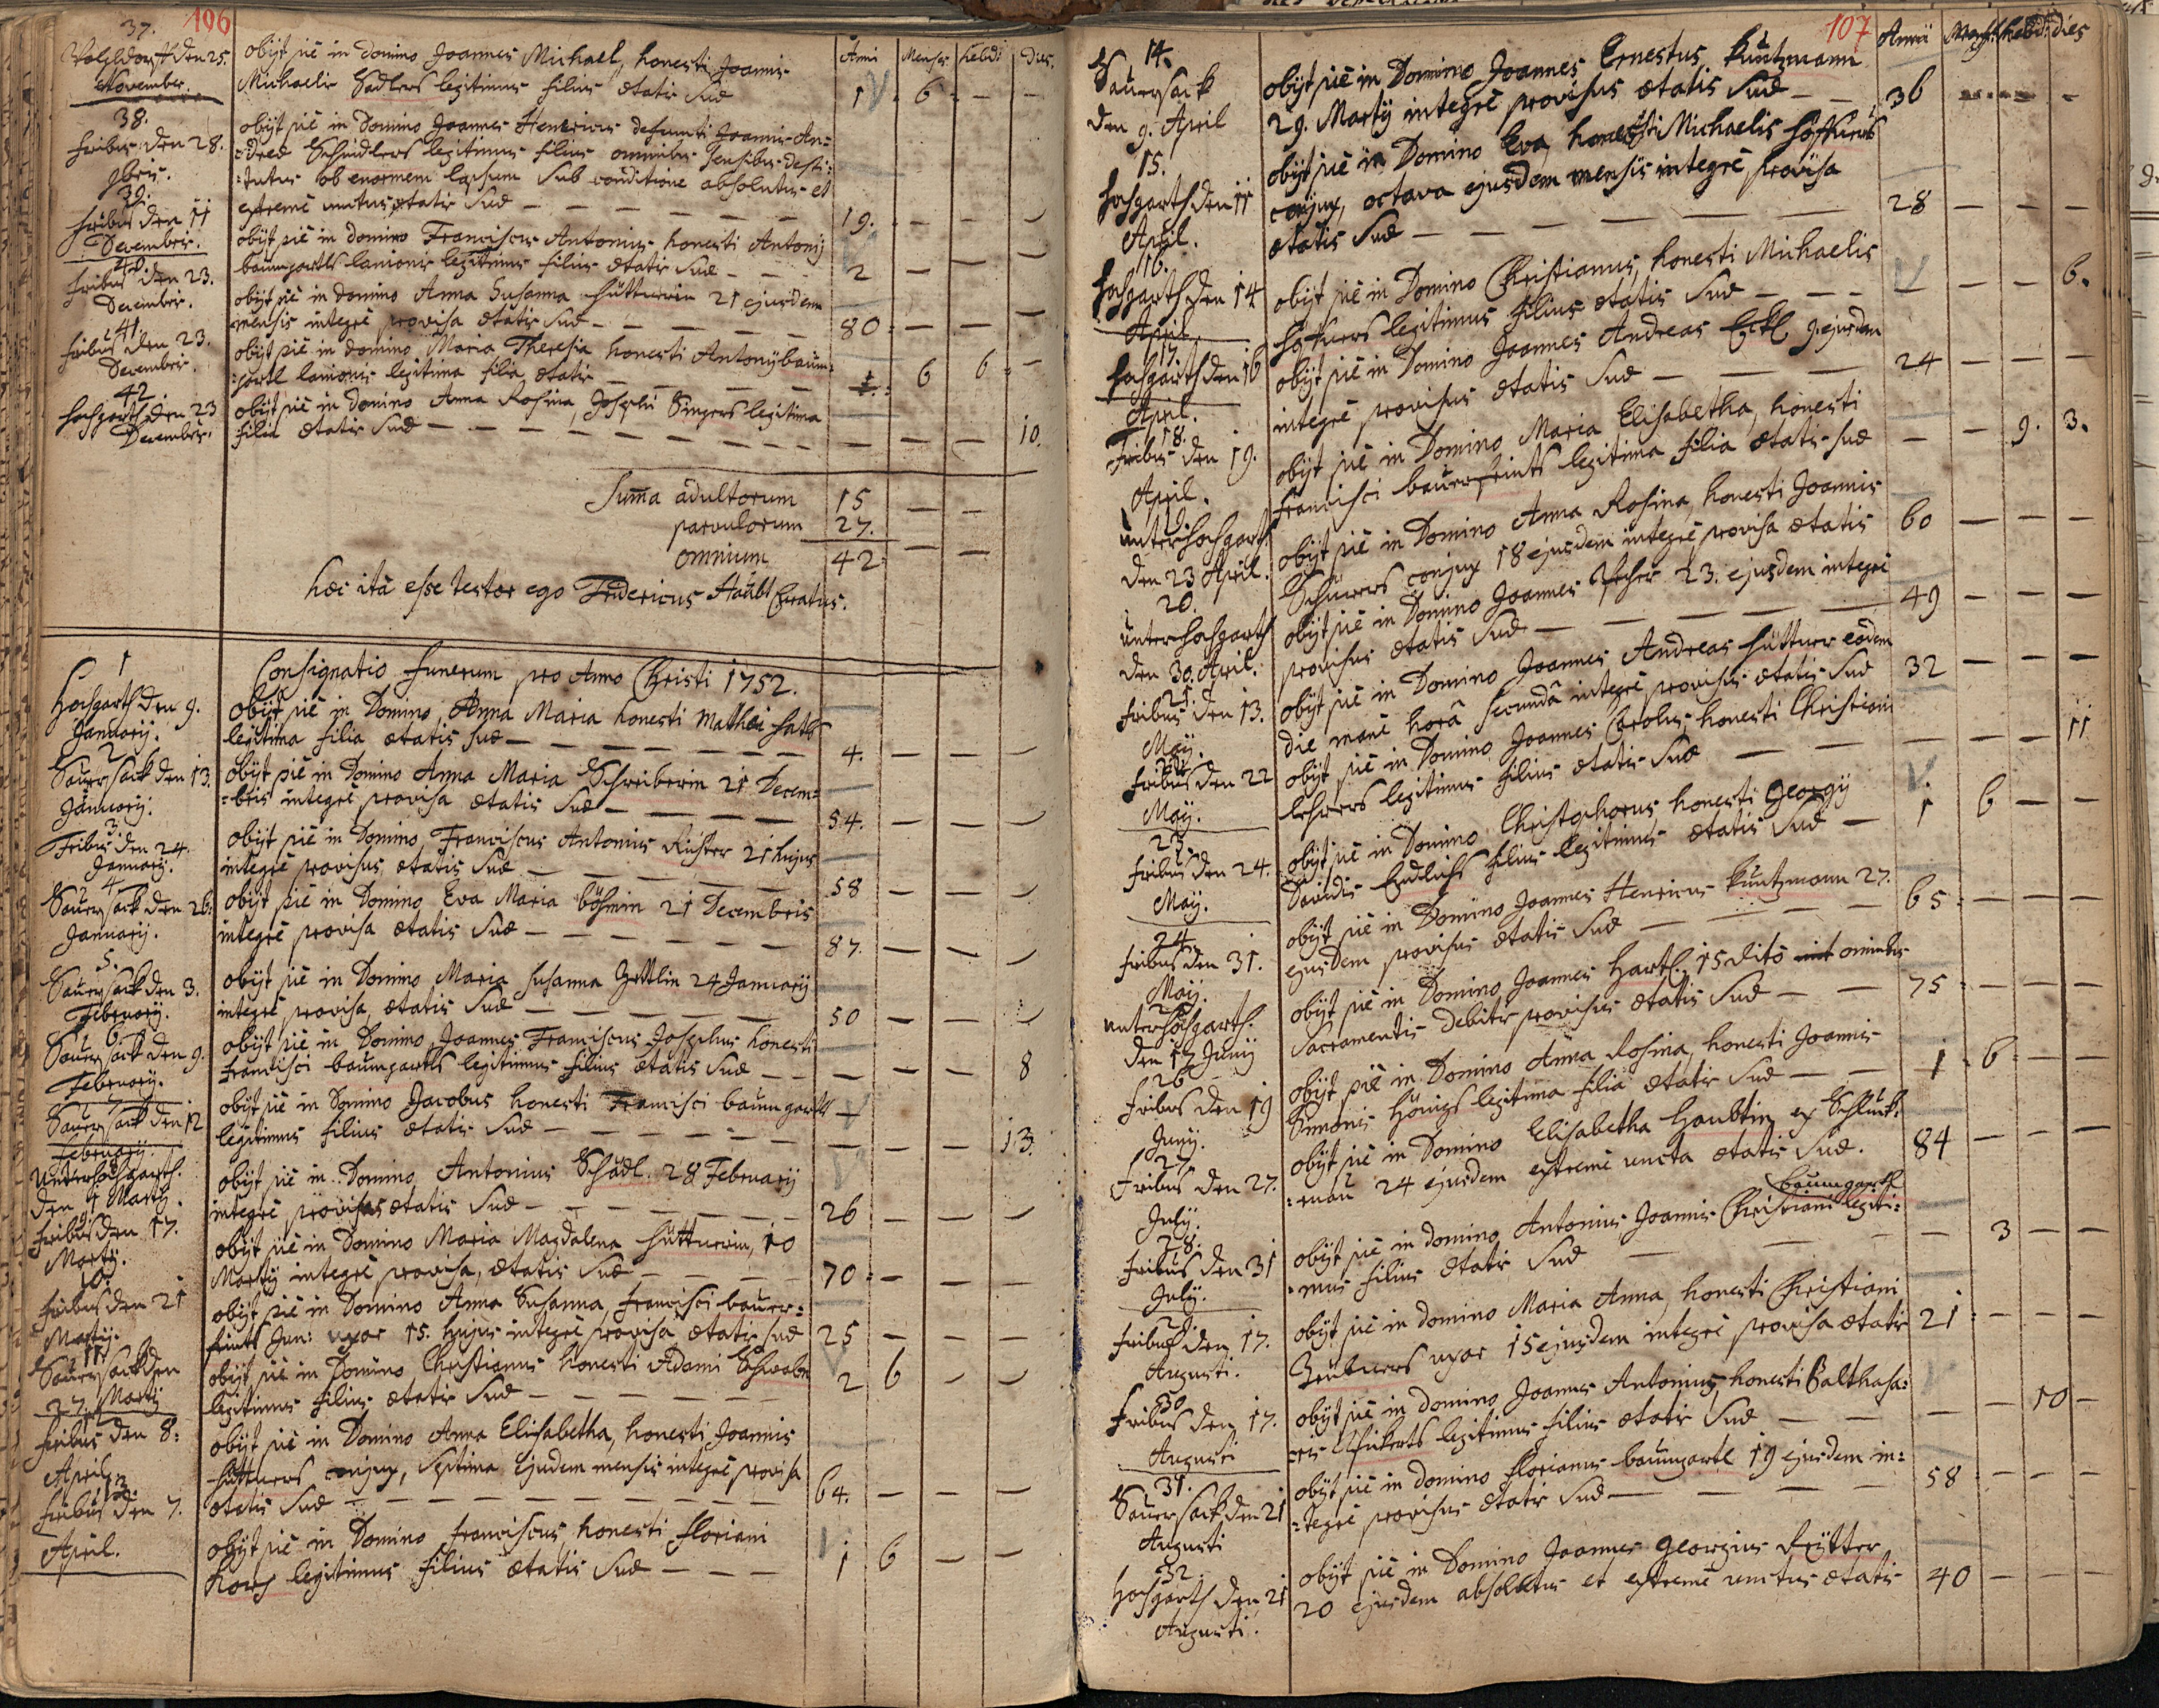 106
37.
den 25.
November.
obijt piè in domino Joannes Michael, honesti Joannis
Michaelis Sadlers legitimus filius ætatis suæ
Anni Menses hebd: Dies.
1 6 - -
38.
fribus den 28.
9bris.
obijt piè in Domino Joannes Henricus defuncti Joannis An=
=dreæ Schindlers legitimus filius omnibus sensibus desti=
=tutus ob enormem lapsum sub conditione absolutus et
extremè unctus ætatis suæ 19.
39.
fribus den 11
December.
obijt piè in domino Franciscus Antonius honesti Antonij
baumgartls lanionis legitimus filius ætatis suæ 2
40.
fribus den 23.
December.
obijt piè in domino Anna Susanna hüttnerin 21 ejusdem
mensis integrè provisa ætatis suæ 80
41.
fribus den 23.
December.
obijt piè in domino Maria Theresia honesti Antonij baum=
=gartl lanionis legitima filia ætatis 6 6
42.
hochgarth den 23
December.
obijt piè in domino Anna Rosina, Josephi Singers legitima
filia ætatis suæ 10.
Summa adultorum 15
parvulorum 27.
omnium 42
hæc ità esse testor ego Fridericus Häubl Curatus.
Consignatio funerum pro Anno Christi 1752.
1
Hochgarth den 9.
Januarij.
obijt piè in Domino Anna Maria honesti Mathæi
legitima filia ætatis suæ 4.
2
Sauersack den 13.
Januarij.
obijt piè in Domino Anna Maria Schreiberin 21 Decem=
=bris integrè provisa ætatis suæ 54.
3
Fribus den 24.
Januarij.
obijt piè in Domino Franciscus Antonius Richter 21 hujus
integrè provisus ætatis suæ 58
4
Sauersack den 26.
Januarij.
obijt piè in Domino Eva Maria böhmin 21 Decembris
integrè provisa ætatis suæ 87.
5.
Sauersack den 3.
Februarij.
obijt piè in Domino Maria Susanna 24 Januarij
integrè provisa, ætatis suæ 50
6.
Sauersack den 9.
Februarij.
obijt piè in Domino Joannes Franciscus Josephus honesti
francisci baumgartls legitimus filius ætatis suæ 8
7
Sauersack den 12
Februarij.
obijt piè in Domino Jacobus honesti Francisci baumgartls
legitimus filius ætatis suæ 13.
8
Unterhochgarth.
den 1 Martij.
obijt piè in Domino Antonius Schädl. 28 Februarij
integrè provisus ætatis suæ 26
9
fribus den 17.
Martij.
obijt piè in Domino Maria Magdalena hüttnerin, 10
Martij integrè provisa, ætatis suæ 70
10.
fribus den 21
Martij.
obijt piè in Domino Anna Susanna, francisci bauer=
feints Jun: uxor 15. hujus integrè provisa ætatis suæ 25
11
Sauersack den
27. Martij
obijt piè in Domino Christianus honesti Adami Schwabn
legitimus filius ætatis suæ 2 6
12.
fribus den 8:
April
obijt piè in Domino Anna Elisabetha, honesti Joannis
hüttners conjux, septima ejusdem mensis integrè provisa
ætatis suæ 64.
13.
fribus den 7.
April.
obijt piè in Domino franciscus, honesti floriani
legitimus filius ætatis suæ 1 6
107
Annii Mens: hebd: dies
14.
Sauersack
den 9. April
obijt piè in Domino Joannes Ernestus Kuntzmann
29. Martij integrè provisus ætatis suæ 36
15.
hochgarth den 11
April.
obijt piè in Domino Eva, honesti Michaelis
conjux, octava ejusdem mensis integrè provisa
ætatis suæ 28
16.
hochgarth den 14
April
obijt piè in Domino Christianus, honesti Michaelis
legitimus filius ætatis suæ 6.
17.
hochgarth den 16
April.
obijt piè in Domino Joannes Andreas 9. ejusdem
integrè provisus ætatis suæ 24
18.
Fribus den 19.
April.
obijt piè in Domino Maria Elisabetha, honesti
francisci bauerfeints legitima filia ætatis suæ 9. 3.
19.
unterhochgarth
den 23 April.
obijt piè in Domino Anna Rosina, honesti Joannis
conjux 18 ejusdem integrè provisa ætatis 60
20.
unterhochgarth
den 30. April.
obijt piè in Domino Joannes 23. ejusdem integrè
provisus ætatis suæ 49
21.
fribus den 13.
Maij.
obijt piè in Domino Joannes Andreas hüttner eodem
die manè horâ secundâ integrè provisus ætatis suæ 32
22
fribus den 22
Maij.
obijt piè in Domino Joannes Carolus, honesti Christiani
legitimus filius ætatis suæ 11
23.
fribus den 24.
Maij.
obijt piè in Domino Christophorus, honesti Georgij
Davidis Endlichs filius legitimus ætatis suæ 1 6
24.
fribus den 31.
Maij.
obijt piè in Domino Joannes Henricus Kuntzmann 27.
ejusdem provisus ætatis suæ 65
25
unterhochgarth.
den 17 Junij
obijt piè in Domino Joannes Hartl. 15 dito omnibus
Sacramentis debitè provisus ætatis suæ 75
26
fribus den 19
Junij.
obijt piè in Domino Anna Rosina, honesti Joannis
Simonis Hönigs legitima filia ætatis suæ 1 6
27
Fribus den 27.
July.
obijt piè in Domino Elisabetha Haubtin ex Schluck=
=enau 24 ejusdem extremè uncta ætatis suæ. 84
28.
fribus den 31
July.
baumgartl
obijt piè in domino Antonius Joannis Christiani legiti=
=mus filius ætatis suæ 3
29.
fribus den 17.
Augusti.
obijt piè in domino Maria Anna, honesti Christiani
uxor 15 ejusdem integrè provisa ætatis 21
30
fribus den 17.
Augusti
obijt piè in domino Joannes Antonius, honesti Balthasa=
=ris legitimus filius ætatis suæ 10
31.
Sauersack den 21
Augusti
obijt piè in domino florianus baumgartl 19 ejusdem in=
=tegrè provisus ætatis suæ 58
32.
Hochgarth den 21
Augusti.
obijt piè in Domino Joannes Georgius Reÿtter
20 ejusdem absolutus et extremè unctus ætatis 40